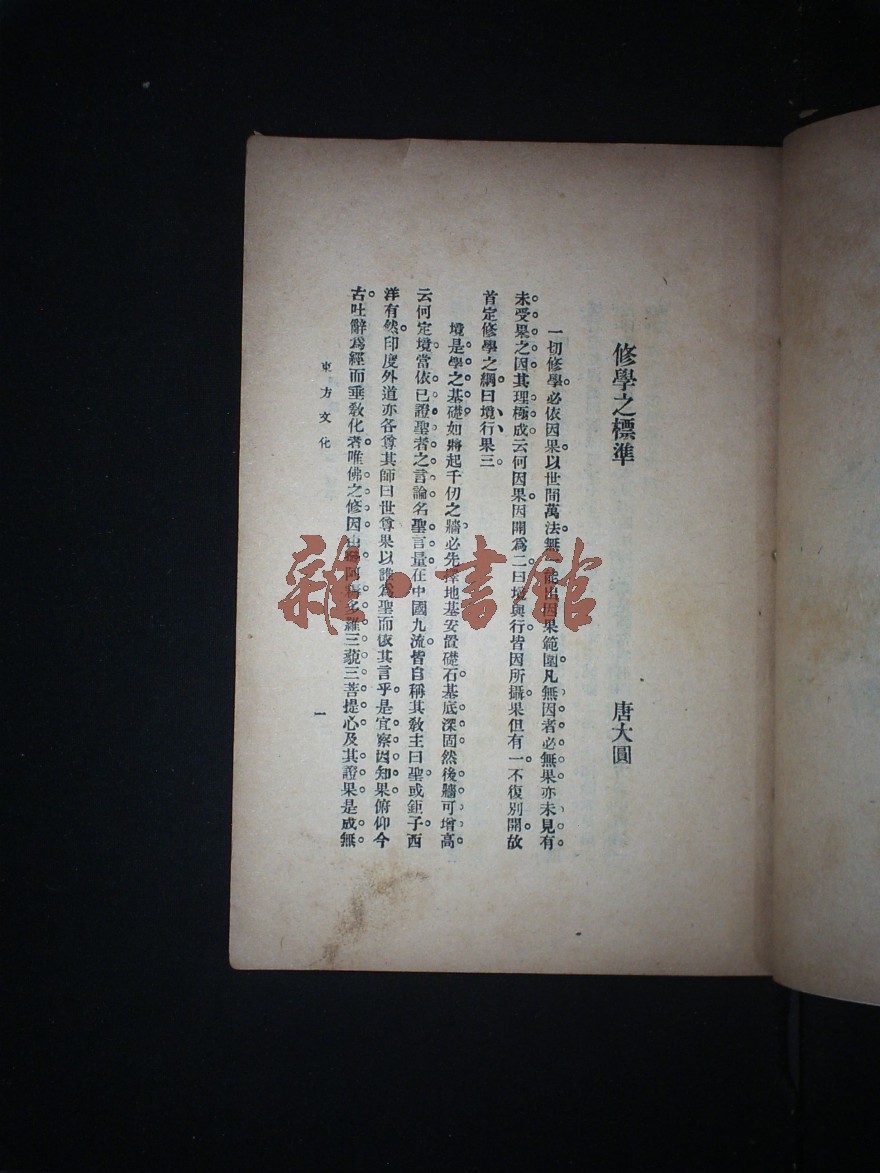 修學之標準
唐大圓
一切修學。必依因果。以世間萬法。無一能出因果範圍。凡無因者。必無果。亦未見有。
未受果之因。其理極成。云何因果。因開爲二。曰境與行。皆因所攝。果但有一。不復別開。故
首定修學之綱。曰境、行、果三。
境。是學之基礎。如將起千仞之牆。必先擇地基。安置礎石。基底深固。然後牆可增高。
云何定境。當依已證聖者之言論。名聖言量。在中國九流。皆自稱其教主曰聖。或鉅子。西
洋有然。印度外道。亦各尊其師曰世尊。果以誰爲聖而依其言乎。是宜察因知果。俯仰今
古。吐辭爲經而垂教化者。唯佛之修因。
三藐三菩提心。及其證果。是成無
東方文化
一
雜·書館